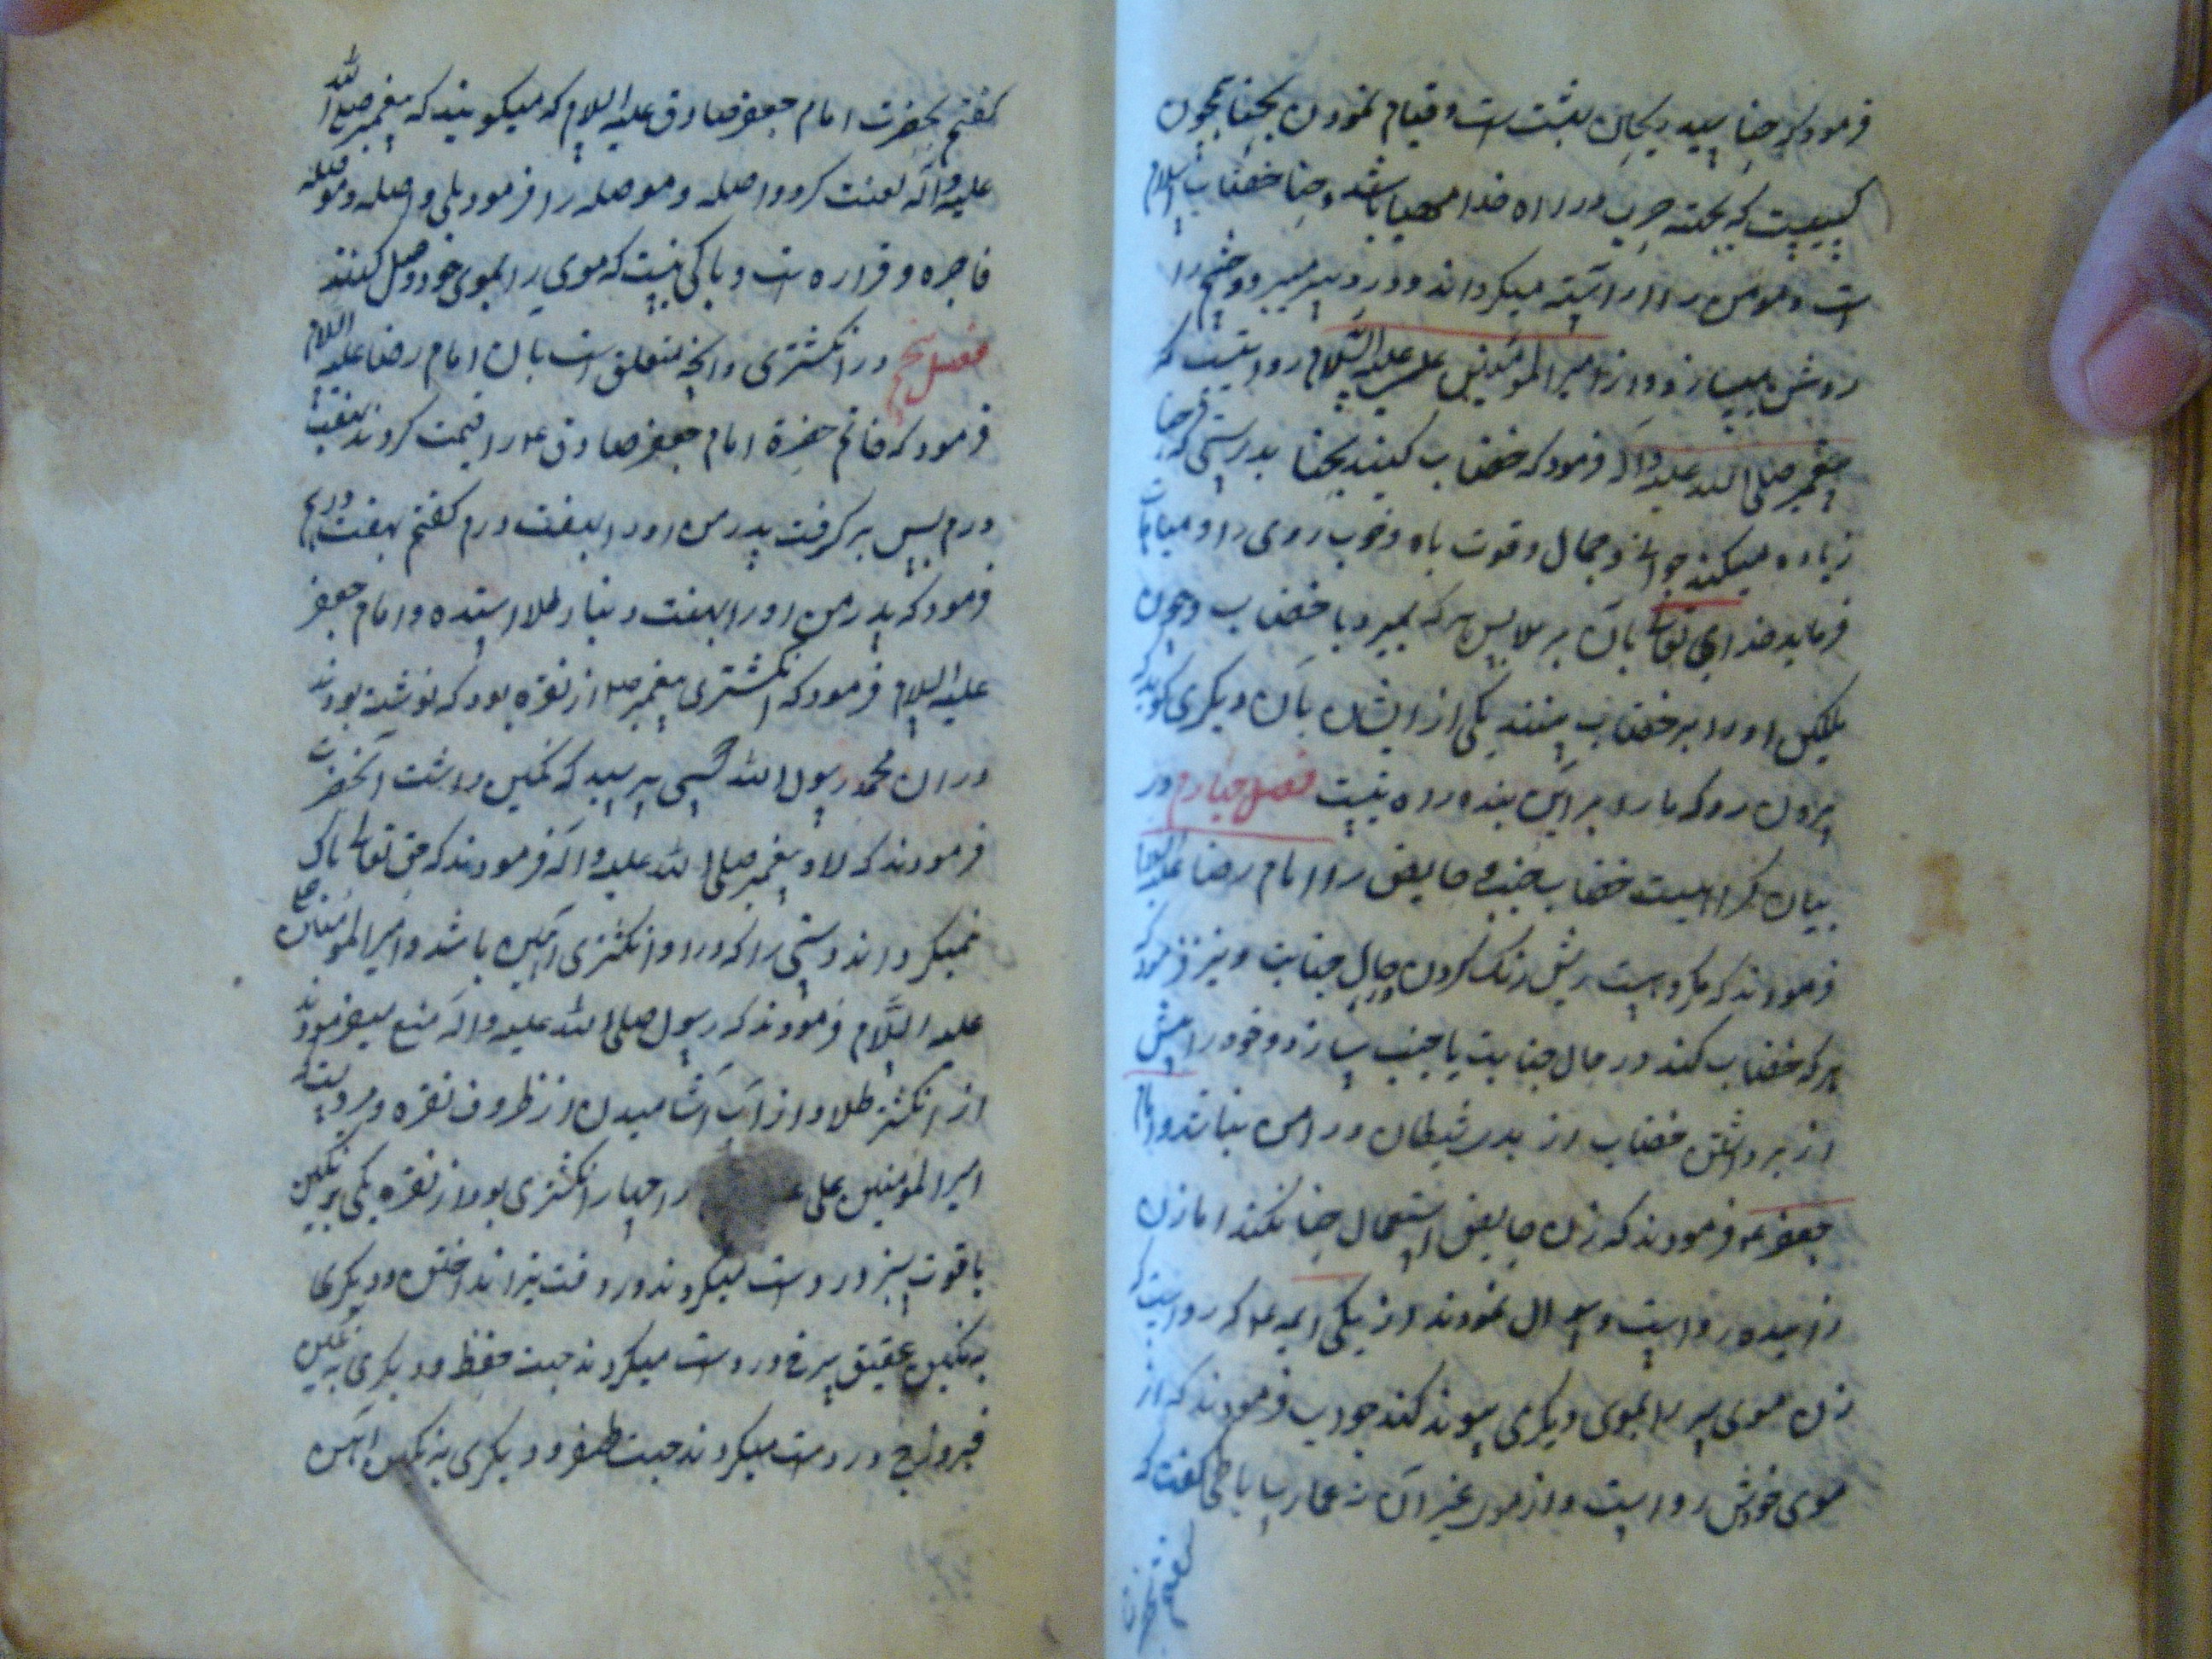 فرمود که حنا سیدریحان بهشت است و قیام نمودن بحنا همچون
کسیست که بجهة حرب در راه خدا مهیا باشد و حنا خضاب اسلام
است و مومن را آراسته میکرداند و درد سر میبرد و چشم را
روشن میسازد و از امیرالمؤمنین علی علیه السلام روایتست که
پیغمبر صلی الله علیه واله فرمود که خضاب کنید بحنا بدرستی که حنا
زیاده میکند جوانی و جمال و قوت باه و خوب روی را و مباهات
فرماید خدای تعالی بآن بر ملایکه هر که بمیرد با خضاب و چون
ملکین او را بر خضاب بینند یکی از ایشان بآن دیکری کوید که
بیرون رو که ما را بر این بنده راه نیست فصل چهارم در
بیان کراهیت خضاب جنب و حایض را امام رضا علیه السلام
فرمودند که مکروهست ریش رنک کردن بحال جنابت و نیز فرمود که
هر که خضاب کند در حال جنابت یا جنب سازد خود را پیش
از برداشتن خضاب از بدی شیطان در امن نباشد و امام
جعفر ع فرمودند که زن حایض استعمال حنا نکند اما زن
زاییده رواست و سوال نمودند از یکی ایمه ع که رواست که
زن موی سر را بموی دیکری پیوند کند جواب فرمودند که از
موی خویش رواست و از موی غیر آن نه عمار ساباطی کفت که
کفتم بحضرت
کفتم بحضرت امام جعفر صادق علیه السلام که میکویند که پیغمبر صلی الله
علیه واله لعنت کرد واصله و موصله را فرمود بلی واصله و موصله
فاجره و قراره است و باکی نیست که موی را بموی خود وصل کنند
فصل پنجم در انکشتری و انچه متعلق است بان امام رضا علیه السلام
فرمود که خاتم حضرة امام جعفر صادق ع را قیمت کردند بهفت
درم پس برکرفت پدر من او را بهفت درم کفتم بهفت درم
فرمود که پدر من او را بهفت دینار طلا استده و امام جعفر
علیه السلام فرمود که انکشتری پیغمبر ص از نقره بود که نوشته بودند
در ان محمد رسول الله کسی پرسید که نکین داشت آنحضرت
فرمودند که لا و پیغمبر صلی الله علیه واله فرمودند که حق تعالی پاک
نمیکرداند دستی را که در او انکشتری آهین باشد و امیرالمؤمنان علی
علیه السلام فرمودند که رسول صلی الله علیه واله منع میفرمودند
از انکشتر طلا و از آب آشامیدن از ظروف نقره و مرویست که
امیرالمؤمنین علی را چهار انکشتری بود از نقره یکی بر نکین
یاقوت سبز در دست میکردند در وقت تیر انداختن و دیکری
به نکین عقیق سرخ در دست میکردند جهت حفظ و دیکری به نکین
فیروزج در دست میکردند جهت ظفر و دیکری به نکین آهن